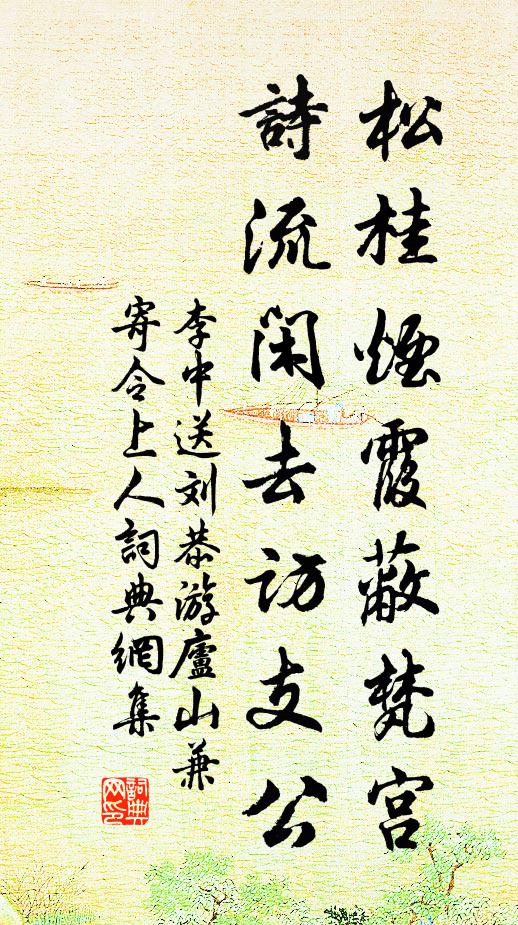 松桂煙霞蔽梵宮
詩流閑去訪支公
李中送刘恭游廬山兼
寄令上人詞典網集
詞典网印